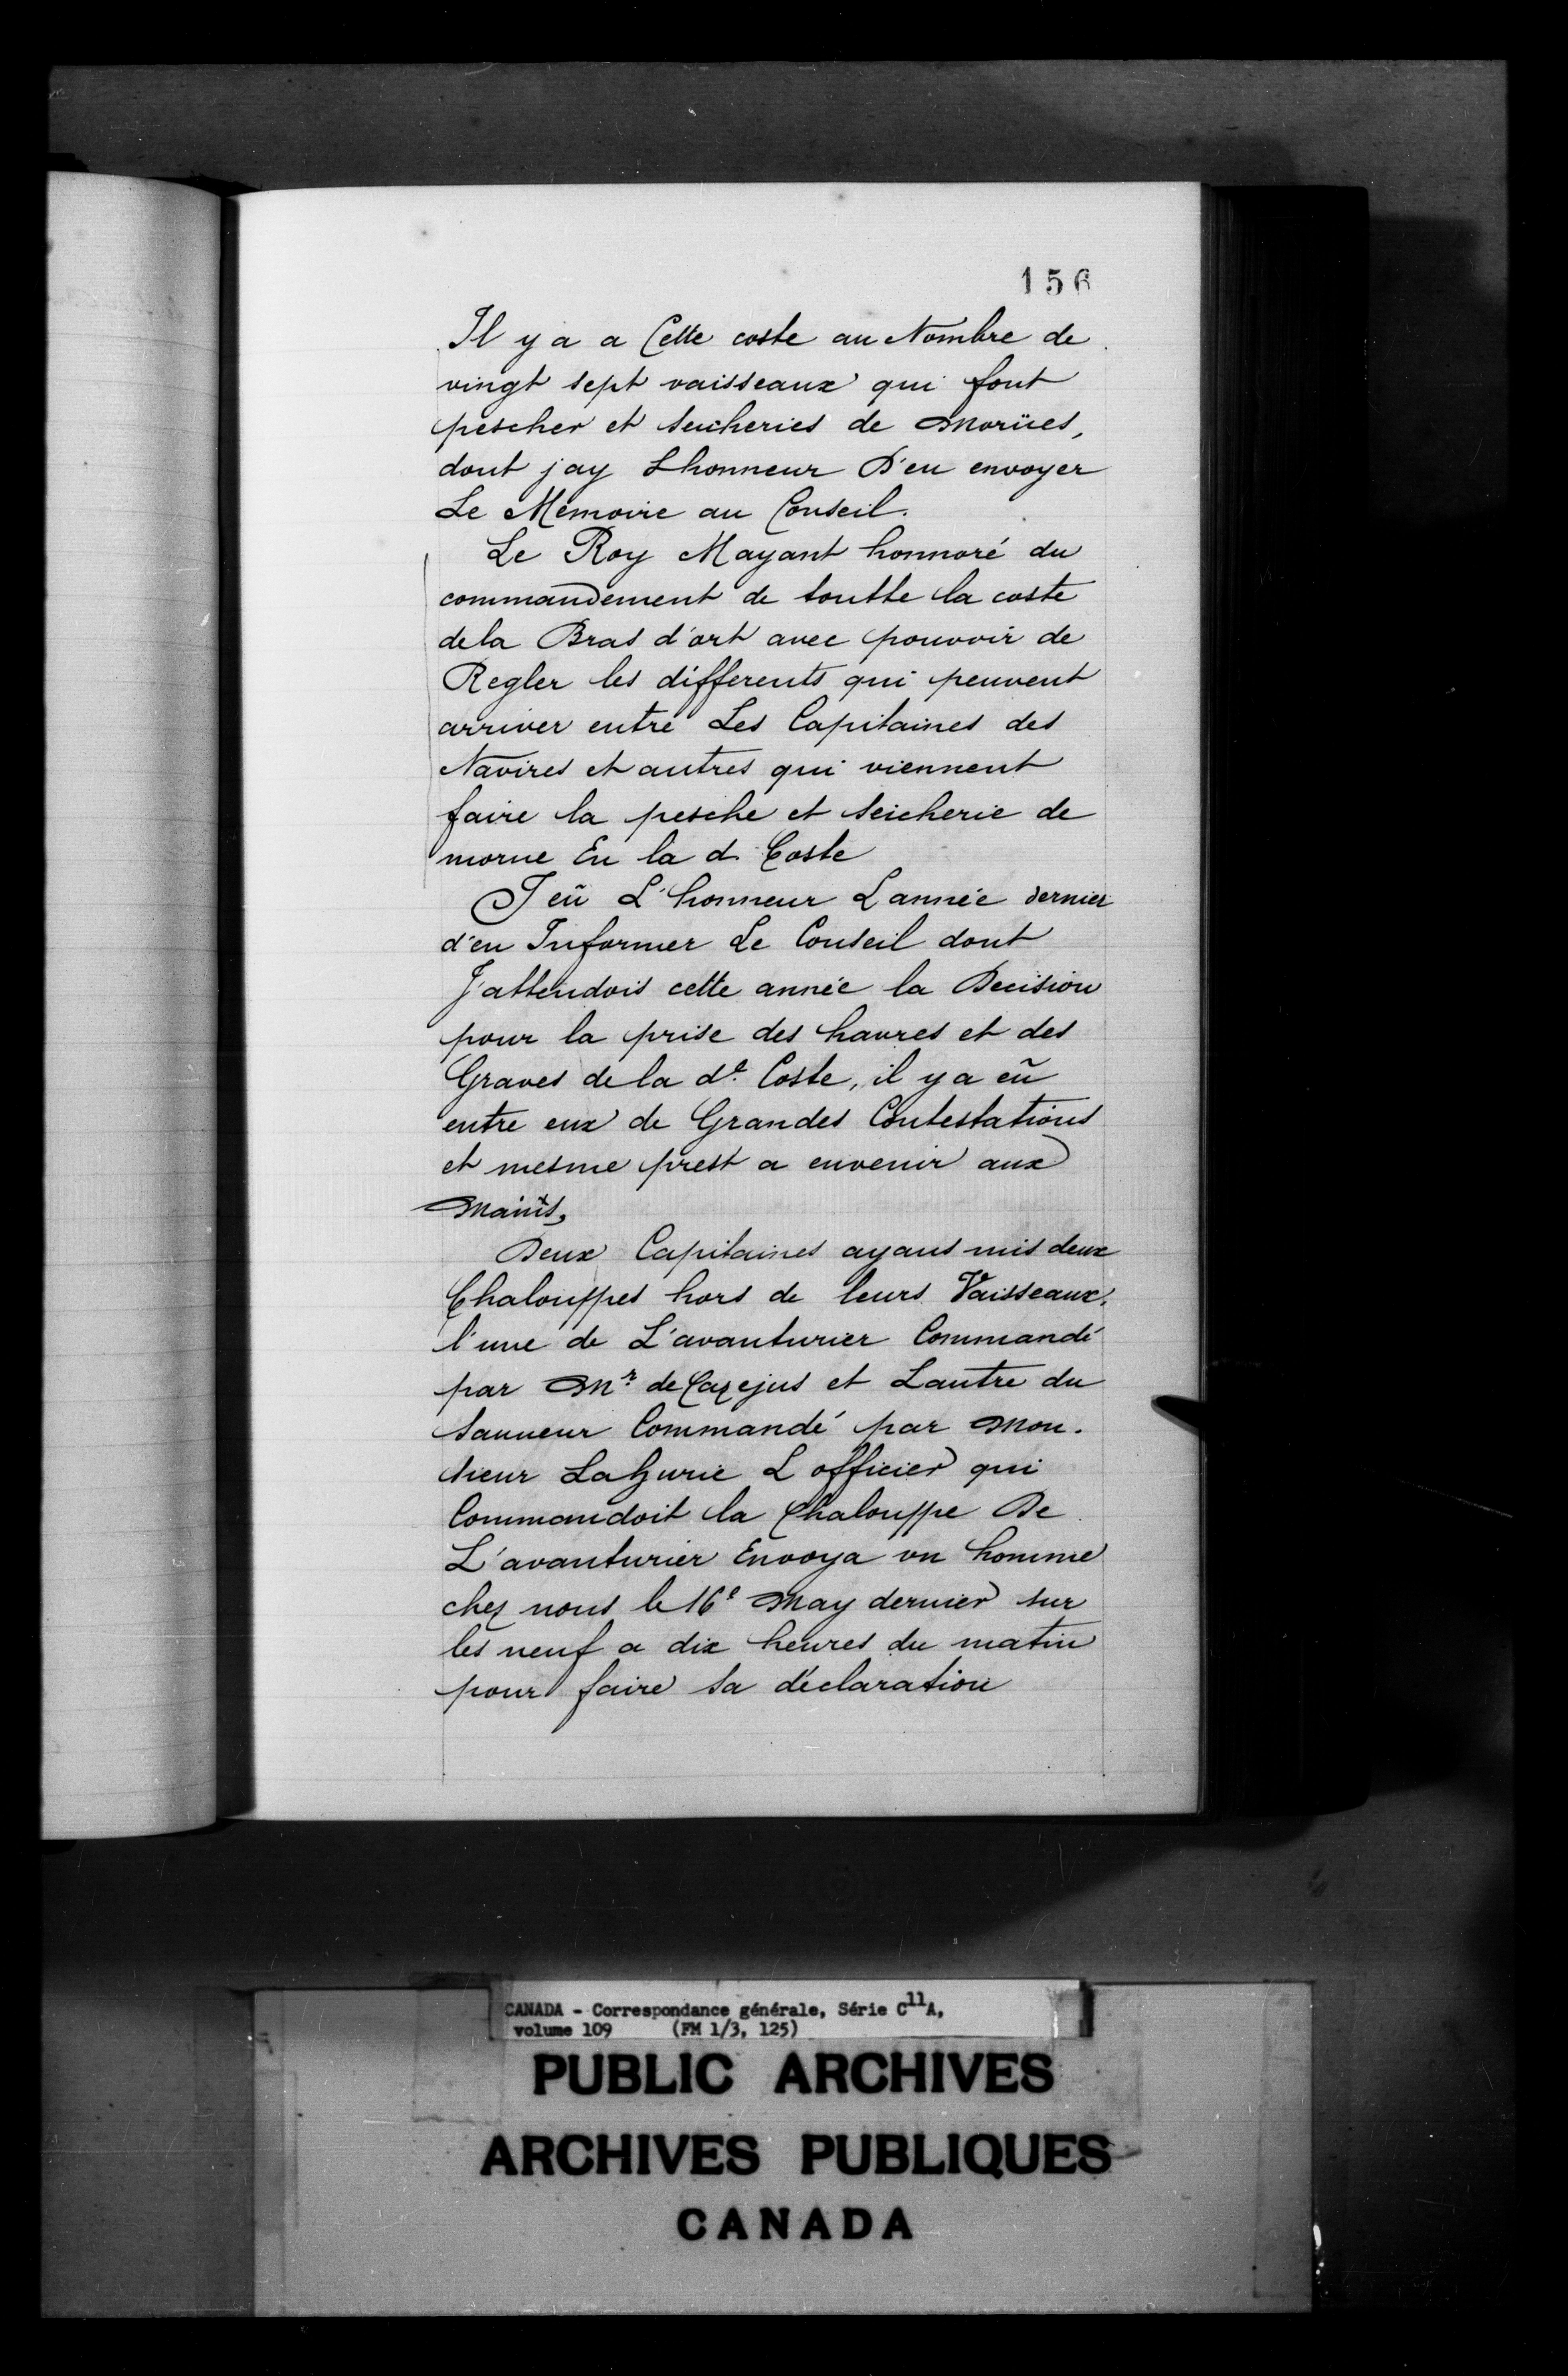 156
Il y a a Cette coste au Nombre de
vingt sept vaisseaux qui font
pescher et seicheries de Morües,
dont jay Lhonneur D'en envoyer
Le Mémoire au Conseil.
Le Roy Mayant honnoré du
commandement de toutte la coste
de la Bras d'ort avec pouvoir de
Regler les differents qui peuvent
arriver entre Les Capitaines des
Navires et autres qui viennent
faire la pesche et seicherie de
morue En la d. Coste
J eü L'honneur L année dernier
d'en Informer Le Conseil dont
J'attendois cette année la Decision
pour la prise des havres et des
Graves de la de. Coste, il y a eü
entre eux de Grandes Contestations
et mesme prest a envenir aux
Mains,
Deux Capitaines ayans mis deux
Chalouppes hors de leurs Vaisseaux,
l'une de L'avanturier Commandé
par Mr. de Cazejus et Lautre du
Sauveur Commandé par Mon.
sieur Lahurie L officier qui
Commandoit la Chalouppe De
L'avanturier Envoya un homme
chez nous le 16e May dernier sur
les neuf a dix heures du matin
pour faire sa déclaration
CANADA - Correspondance générale, Série C11A,
volume 109 (FM 1/3, 125)
PUBLIC ARCHIVES
ARCHIVES PUBLIQUES
CANADA